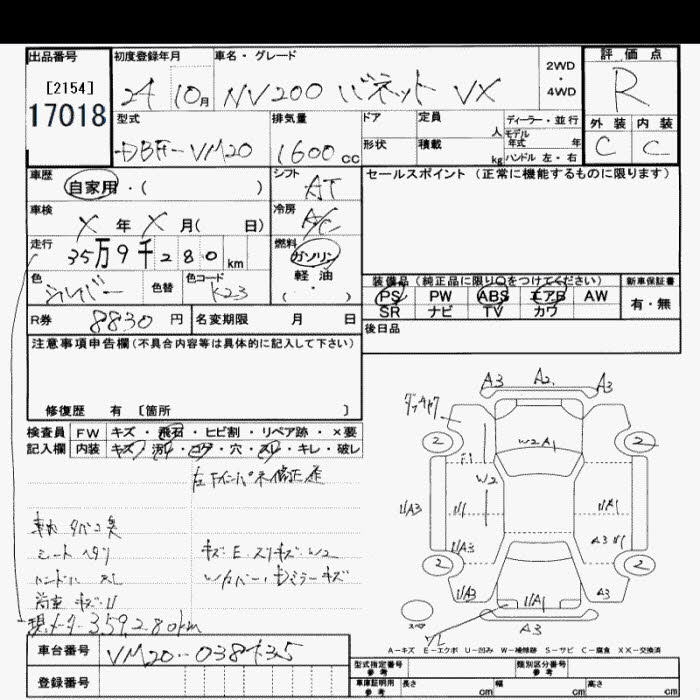 出品番号 初度登録年月 車名・グレード 2WD・4WD 評価点
[2154]
17018
24 10月 NV200 バネット VX R
型式 排気量 ドア 定員 人 ディーラー・並行 外装 内装
DBF-VM20 1600cc 形状 積載 kg モデル年式 年 ハンドル 左・右 C C
車歴 自家用・( ) シフト AT セールスポイント (正常に機能するものに限ります)
車検 X年 X月( 日) 冷房 A/C
走行 35万9千280km 燃料 ガソリン 軽油 ・( )
色 シルバー 色替 色コード K23
装備品 (純正品に限り○をつけてください) 新車保証書
PS PW ABS エアB AW 有・無
SR ナビ TV カワ
R券 8830円 名変期限 月 日 後日品
注意事項申告欄(不具合内容等は具体的に記入して下さい)
修復歴 有 [箇所 ]
検査員 FW キズ・飛石・ヒビ割・リペア跡・×要
記入欄 内装 キズ・汚れ・コゲ・穴・スレ・キレ・破レ
車内 タバコ臭
シート ヘタリ
ハンドル スレ
荷室 キズU
キズ・E・スリキズ・W2
現メーター359,280km
A3 A2 A3
2 W2A1 2
F1
W2
UA3 U1 UA1
UA3 A3 U1
2 2
UA3 UA1 A3
スペア
A3
A-キズ E-エクボ U-凹み W-補修跡 S-サビ C-腐食 XX-交換済
車台番号 VM20-038435
登録番号
型式指定番号 参考 類別区分番号 参考
車庫証明用 参考 長さ cm 幅 cm 高さ cm